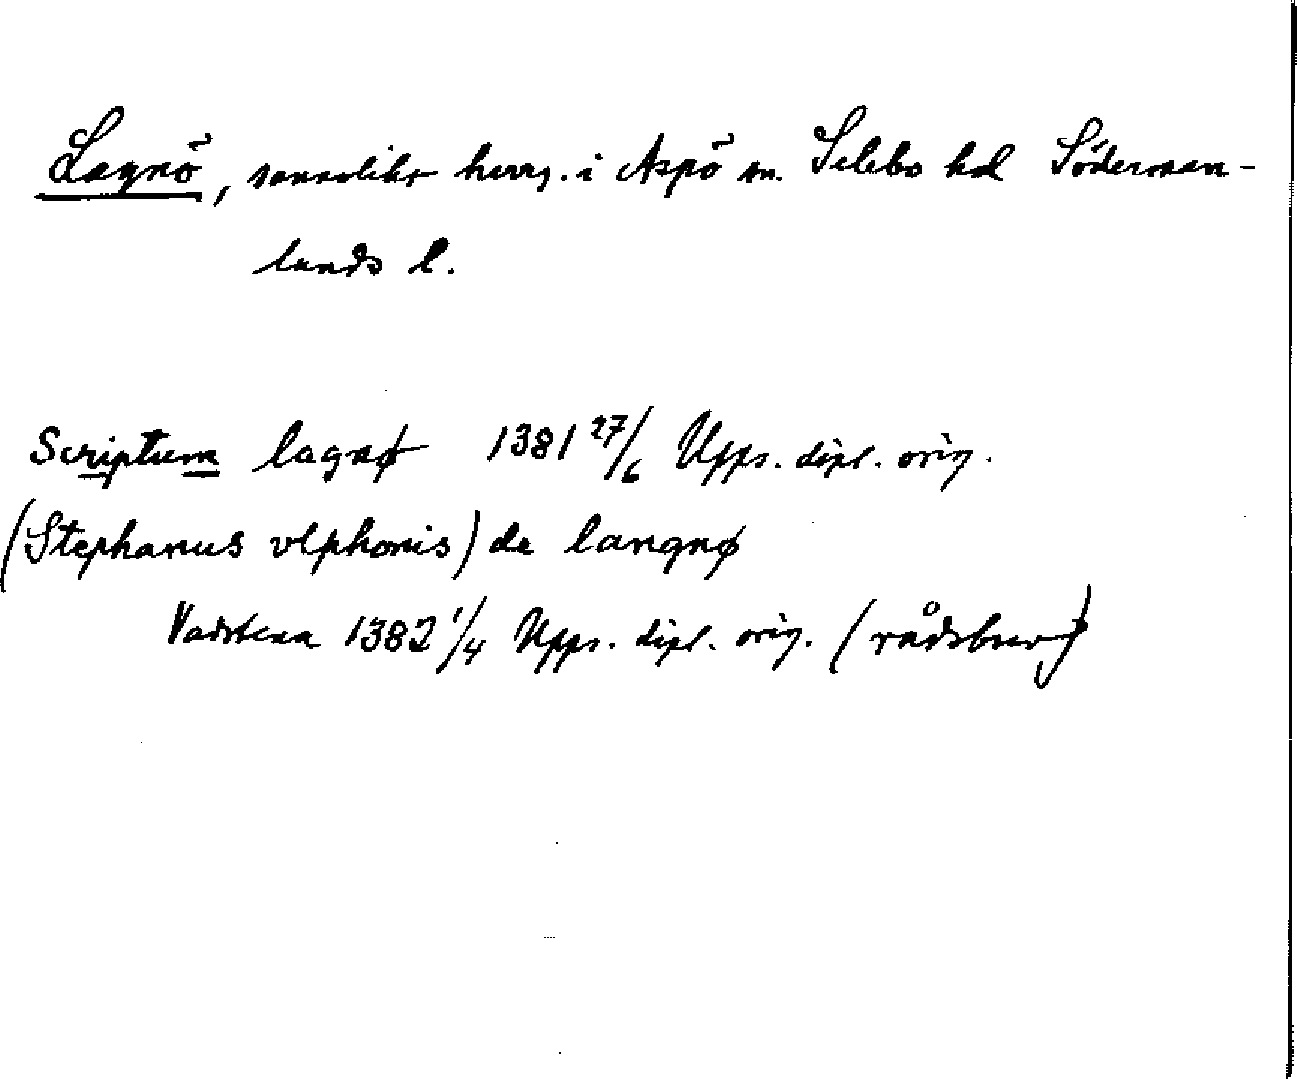 Lagnö, sannolikt herrg. i Aspö sn. Selebo hd Söderman-
lands l.
Scriptum lagnø 1381 27/6 Upps. dipl. orig.
(Stephanus vlphonis) de langnø
Vadstena 1382 1/4 Upps. dipl. orig. (rådsbrev)